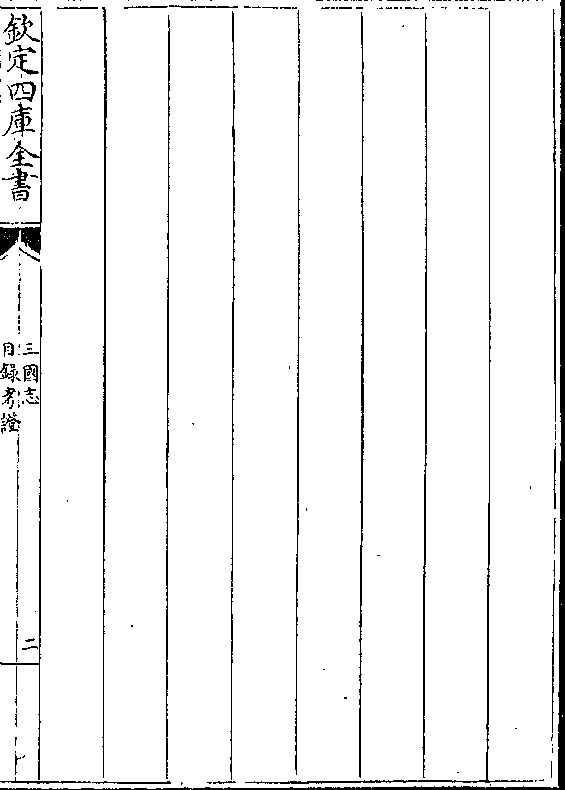 欽定四庫全書
三國志
目錄考證
二